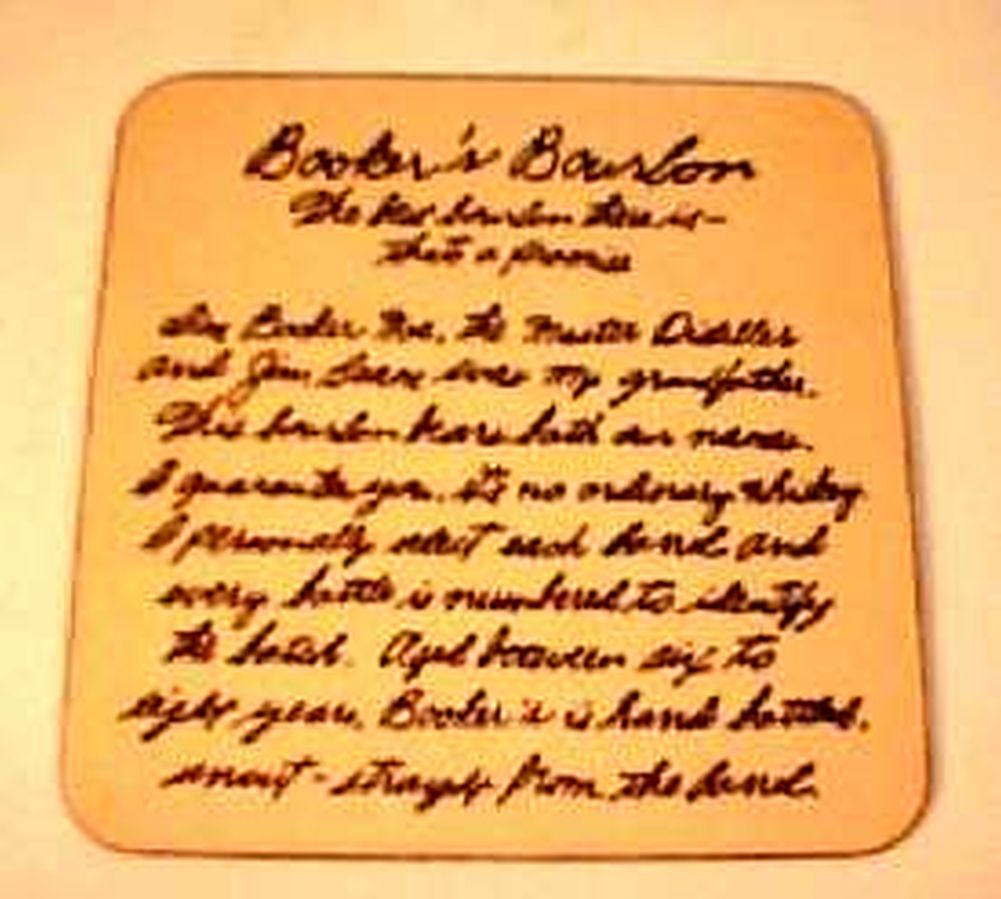 Booker's Bourbon
The best bourbon there is—
that's a promise
I'm Booker Noe, the Master Distiller
and Jim Beam was my grandfather.
This bourbon bears both our names.
I guarantee you, it's no ordinary whiskey
I personally select each barrel and
every bottle is numbered to identify
the batch. Aged between six to
eight years, Booker's is hand bottled,
uncut - straight from the barrel.